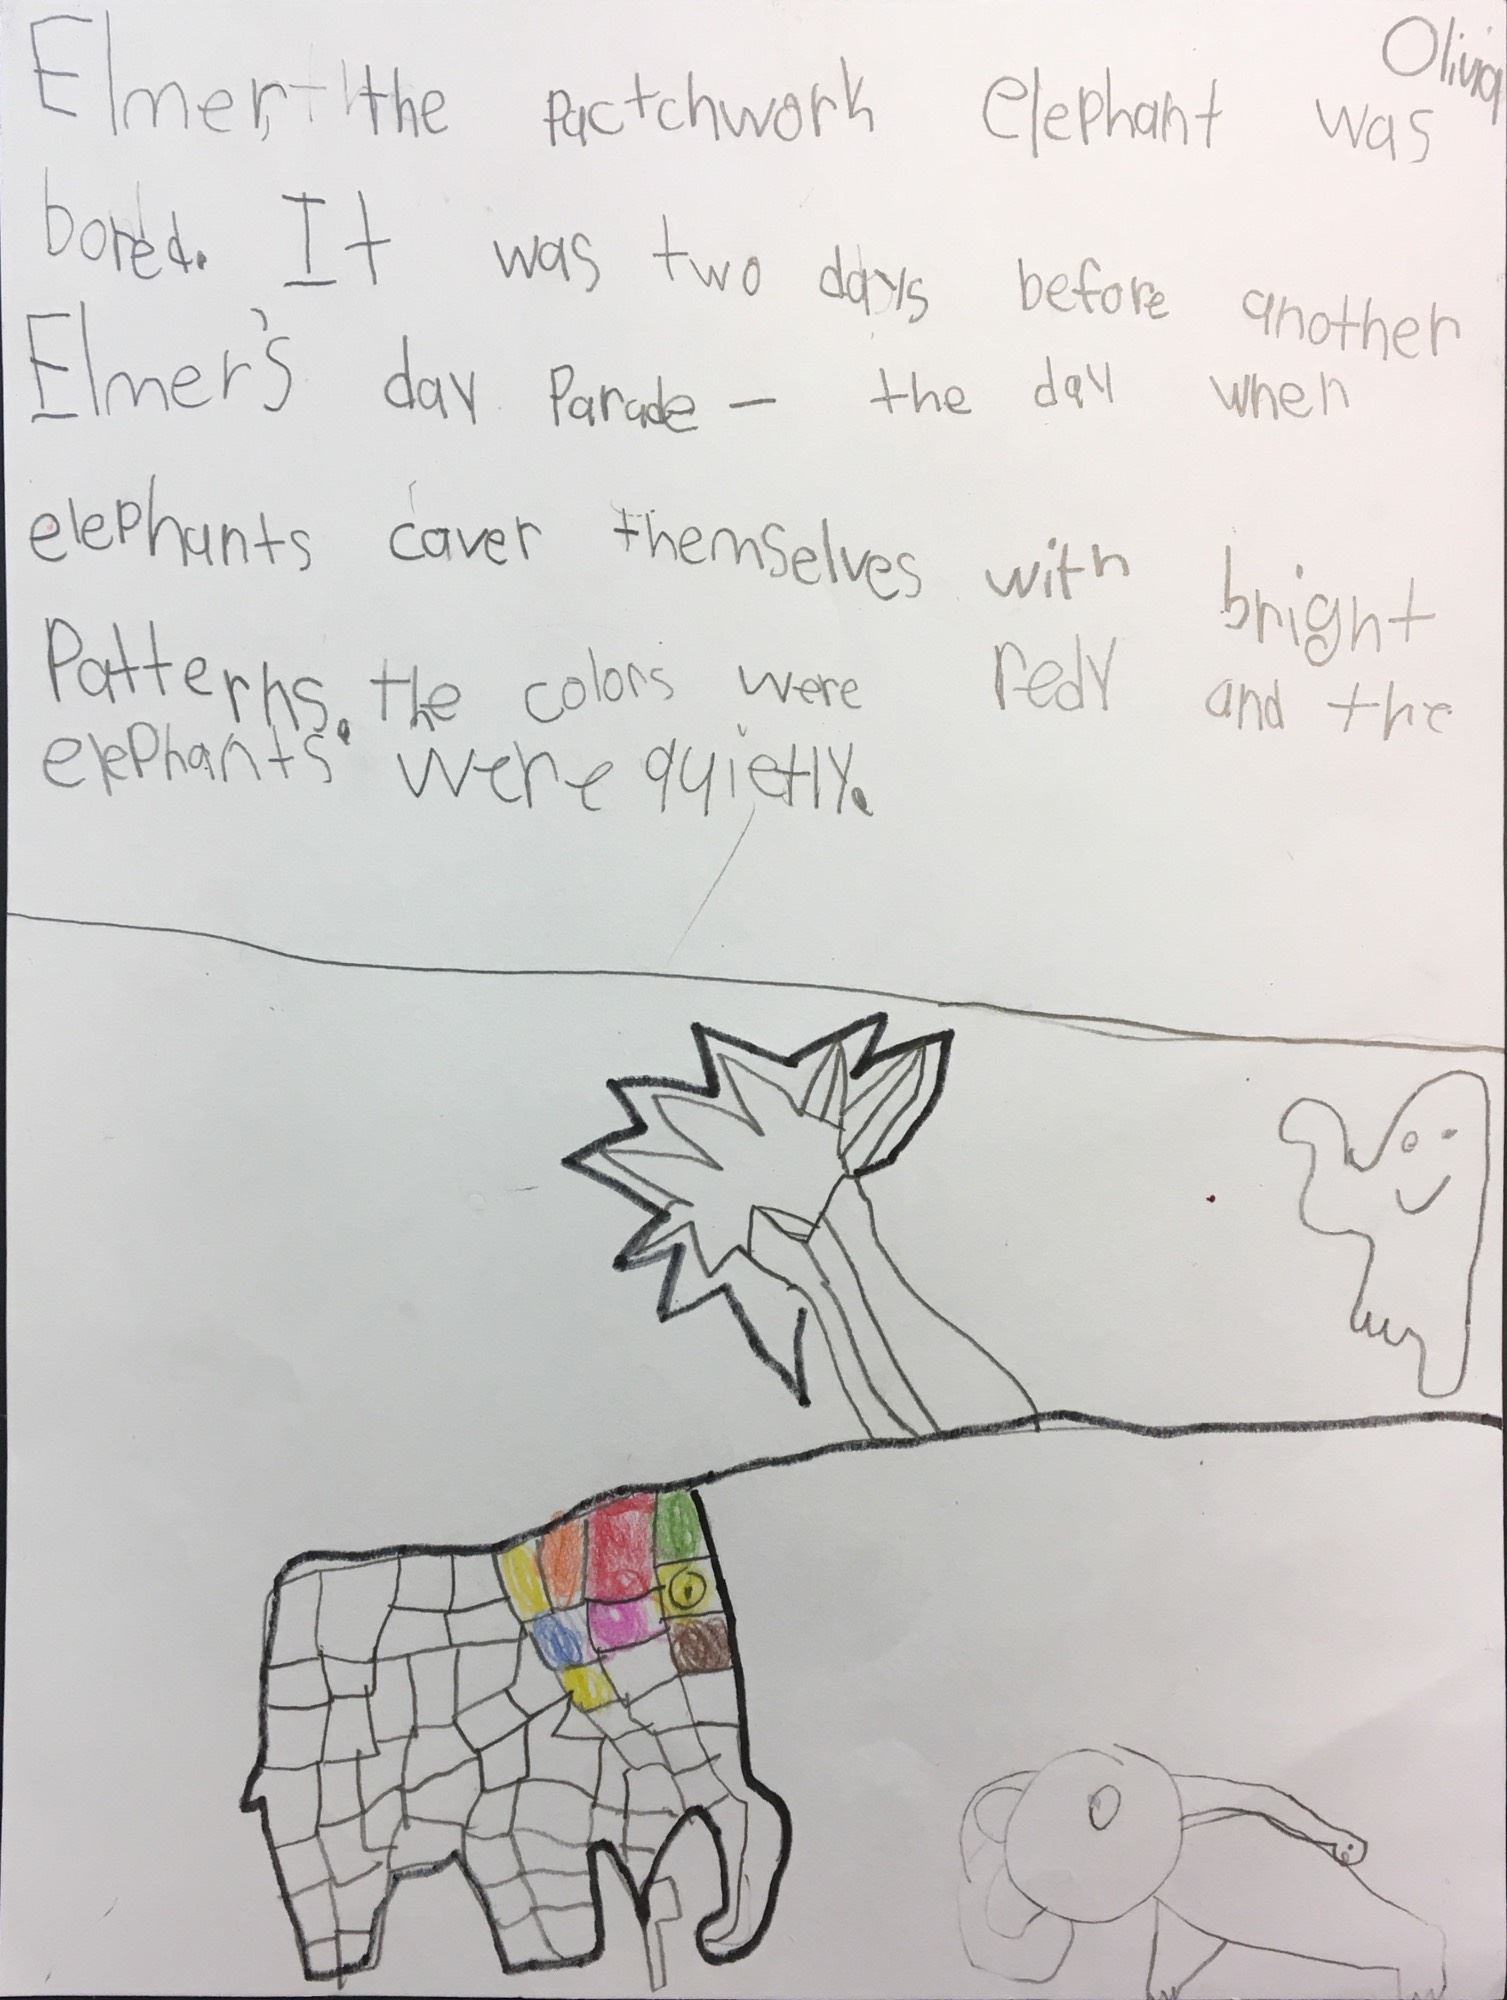 Olivia
Elmer, the pactchwork elephant was
bored. It was two days before another
Elmer's day Parade - the day when
elephants caver themselves with bright
Patterns. the colors were redy and the
elephants were quietly.